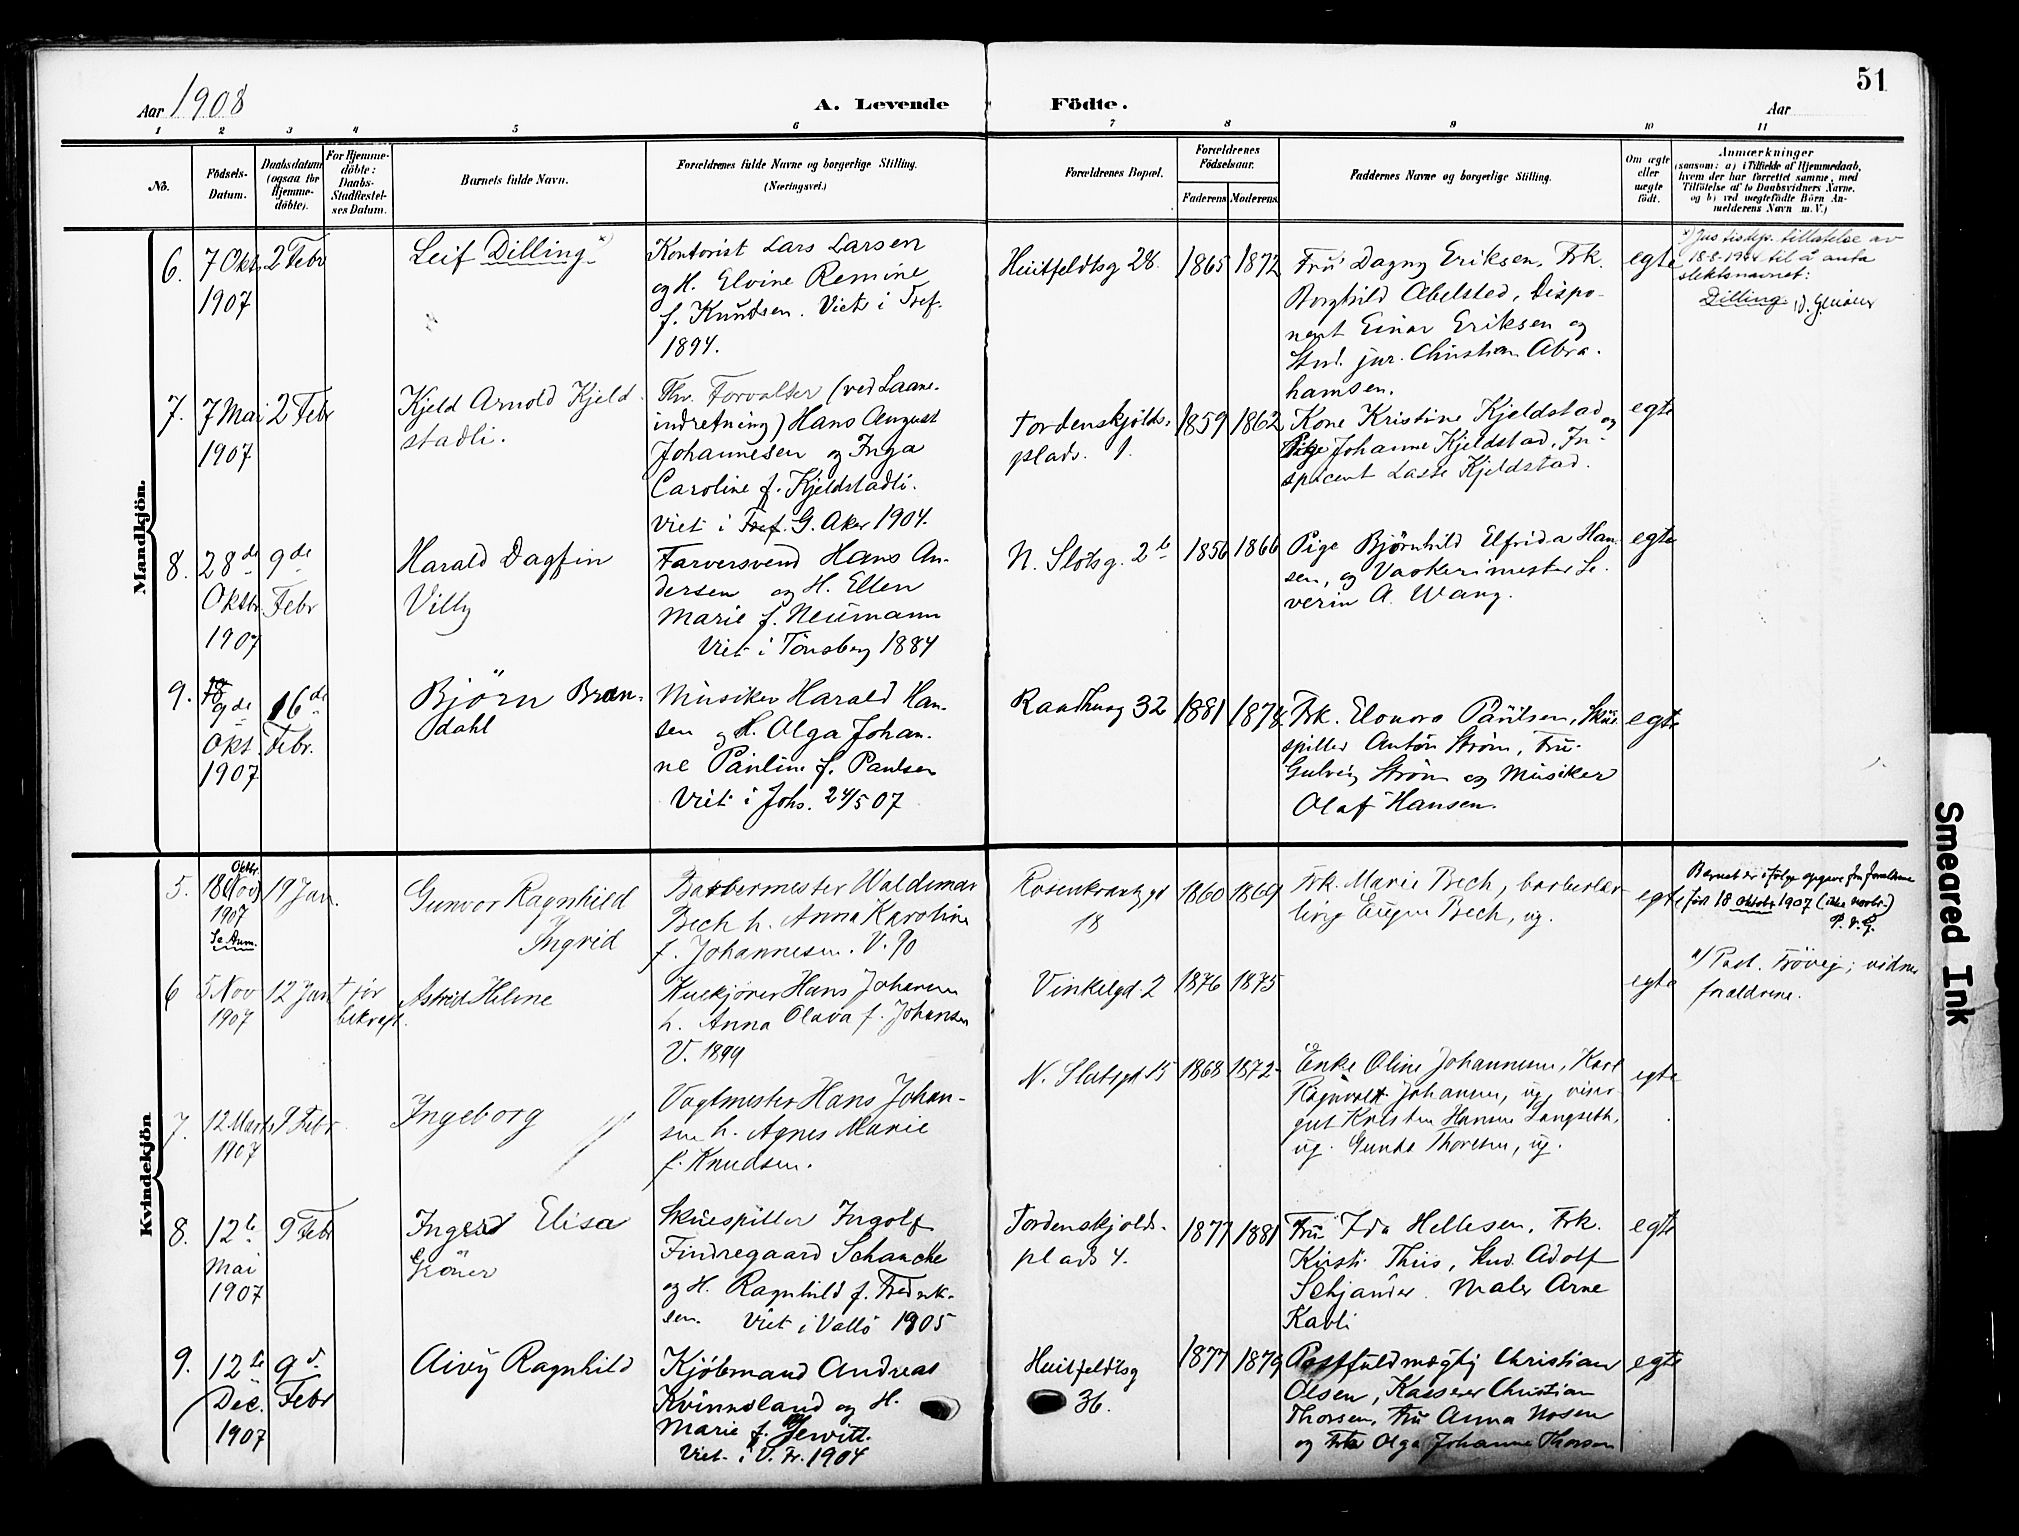 51
Aar 1908
A. Levende Födte.
Aar
1 2 3 4 5 6 7 8 9 10 11
No.
Födsels-
Datum.
Daabsdatum
(ogsaa for
Hjemme-
döbte).
For Hjemme-
döbte:
Daabs-
Stadfæstel-
ses Datum.
Barnets fulde Navn.
Forældrenes fulde Navne og borgerlige Stilling.
(Næringsvei.)
Forældrenes Bopæl.
Forældrenes
Födselsaar.
Faderens Moderens
Faddernes Navne og borgerlige Stilling.
Om ægte
eller
uægte
födt.
Anmærkninger
(saasom: a) i Tilfælde af Hjemmedaab,
hvem der har forrettet samme, med
Tilföielse af to Daabsvidners Navne.
og b) ved uægtefödte Börn An-
melderens Navn m. V.)
Mandkjön.
6.
7 Okt
1907
2 Febr
Leif Dilling x)
Kontorist Lars Larsen
og H. Elvine Remine
f. Knudsen. Viet i Tref.
1894.
Huitfeldtsg 28.
1865
1872
Fru Dagny Eriksen, Frk.
Borghild Abelsted, Dispo-
nent Einar Eriksen og
Stud. jur. Christian Abra-
hamsen.
egte
x) Justisdep. tillatelse av
til å anta
slektsnavnet:
Dilling.
7.
7 Mai
1907
2 Febr
Kjeld Arnold Kjeld-
stadli.
Fhv. Forvalter (ved Laane-
indretning) Hans August
Johannesen og Inga
Caroline f. Kjeldstadli.
Viet i Tref. G. Aker 1904.
Tordenskjolds-
plads. 1.
1859
1862
Kone Kristine Kjeldstad og
Pige Johanne Kjeldstad, In-
spicent Lasse Kjeldstad.
egte
8.
28de
Oktbr
1907
9de
Febr
Harald Dagfin
Villy
Farversvend Hans An-
dersen og H. Ellen
Marie f. Neumann
Viet i Tönsberg 1884
N. Slotsg. 2b
1856
1866
Pige Bjørnhild Elfrida Han-
sen, og Vaskerimester Se-
verin A. Wang.
egte
9.
9de
Okt.
1907
16de
Febr.
Björn Bran-
dahl
Musiker Harald Han-
sen og H. Olga Johan-
ne Pauline f. Paulsen
Viet i Johs. 24/5 07
Raadhusg 32
1881
1878
Frk. Elonora Paulsen, Skue-
spiller Anton Strøm, Fru
Gulvig Strøm og Musiker
Olaf Hansen.
egte
Kvindekjön
5.
Oktbr.
18 Nov
1907
Se Anm.
19 Jan.
Gunvor Ragnhild
Ingrid
Barbermester Waldemar
Bech h. Anna Karoline
f. Johannesen. V. 90
Rosenkrantzgd
18
1860
1869
Frk. Marie Bech, barberlær-
ling Eugen Bech, ug.
egte
Barnet er ifølge opgave fra forældrene
født 18 Oktobr. 1907 (ikke novbr.)
6
5 Nov
1907
12 Jan
+ før
bekræft.
Astrid Helene
Kuskjører Hans Johansen
h. Anna Olava f. Johansen
V. 1899
Vinkelgd. 2
1876
1875
egte
a/ Past. Frövig; vidner
forældrene.
7.
12 Marts
1907
9 Febr
Ingeborg
Vagtmester Hans Johan-
sen h. Agnes Marie
f. Knudsen.
N. Slotsgd 15
1868
1872
Enke Oline Johannesen, Karl
Ragnvald Johansen, ug, viser-
gut Kristen Hansen Langseth,
ug. Gunda Thoresen, ug.
egte
8.
12te
Mai
1907
9 Febr
Ingerd Elisa
Gröner
Skuespiller Ingolf
Findregaard Schancke
og H. Ragnhild f. Fredrik-
sen. Viet i Vallö 1905
Tordenskjolds-
plads 4.
1877
1881
Fru Ida Hellesen, Frk.
Kirsti Thiis, Stud. Adolf
Schjander. Maler Arne
Kavli
egte
9.
12te
Dec.
1907
9d.
Febr
Aivy Ragnhild
Kjöbmand Andreas
Kvinnsland og H.
Marie f. Jewitt.
Viet i V. Fr. 1904
Huitfeldtsg
36.
1877
1879
Postfuldmægtig Christian
Olsen, Kasserer Christian
Thorsen, Fru Anna Nosen
og Frk Olga Johanne Thorsen
egte
Smeared Ink